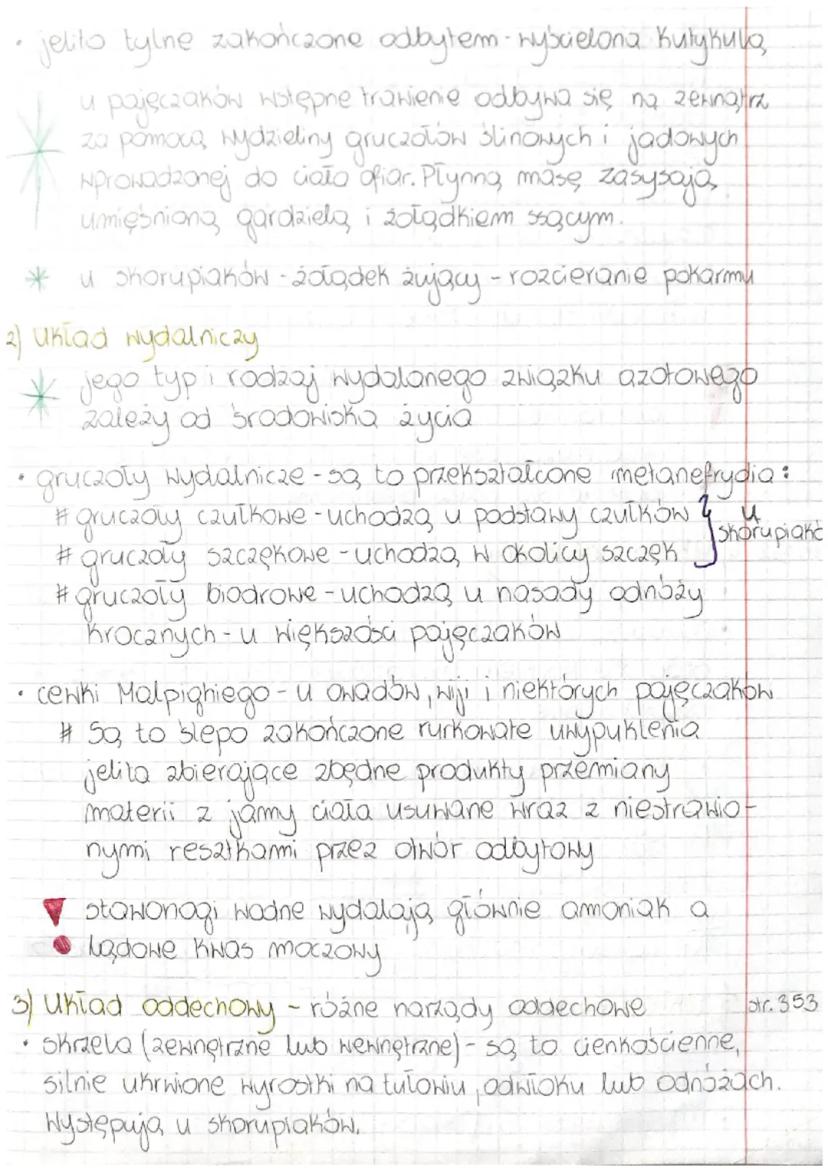 • jelito tylne zakończone odbytem - wyścielona kutykulą
u pajęczaków wstępne trawienie odbywa się na zewnątrz
za pomocą wydzieliny gruczołów ślinowych i jadowych
wprowadzonej do ciała ofiar. Płynną masę zasysają
umięśnioną gardzielą i żołądkiem ssącym.
* u skorupiaków - żołądek żujący - rozcieranie pokarmu
2) Układ wydalniczy
* jego typ i rodzaj wydalanego związku azotowego
zależy od środowiska życia
• gruczoły wydalnicze - są to przekształcone metanefrydia:
# gruczoły czułkowe - uchodzą u podstawy czułków } u
# gruczoły szczękowe - uchodzą w okolicy szczęk skorupiakó
# gruczoły biodrowe - uchodzą u nasady odnóży
krocznych - u większości pajęczaków
• cewki Malpighiego - u owadów, wiji i niektórych pajęczaków
# Są to ślepo zakończone rurkowate uwypuklenia
jelita zbierające zbędne produkty przemiany
materii z jamy ciała usuwane wraz z niestrawio-
nymi resztkami przez otwór odbytowy
stawonogi wodne wydalają głównie amoniak a
lądowe kwas moczowy
3) Układ oddechowy - różne narządy oddechowe str. 353
• skrzela (zewnętrzne lub wewnętrzne) - są to cienkościenne,
silnie ukrwione wyrostki na tułowiu, odwłoku lub odnóżach.
Występują u skorupiaków.